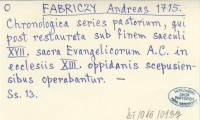 O FABRICZY Andreas 1715.
Chronologica series pastorum, qui
post restaureta sub finem saeculi
XVII. sacra Evangelicorum A.C. in
ecclesiis XIII. oppidanis scepusien-
sibus operabantur. —
Ss. 13.